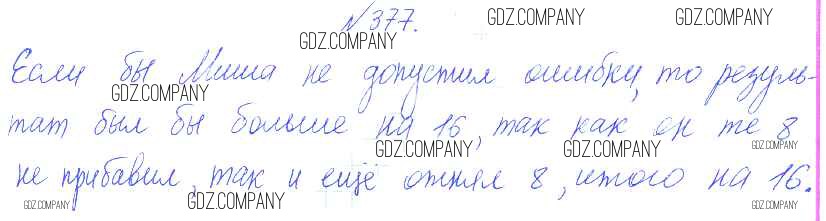 №377.
GDZ.COMPANY GDZ.COMPANY
GDZ.COMPANY
Если бы Миша не допустил ошибки, то резуль-
GDZ.COMPANY GDZ.COMPANY
тат был бы больше на 16, так как он те 8
GDZ.COMPANY GDZ.COMPANY GDZ.COMPANY
не прибавил, так и ещё отнял 8, итого на 16.
GDZ.COMPANY GDZ.COMPANY GDZ.COMPANY GDZ.COMPANY